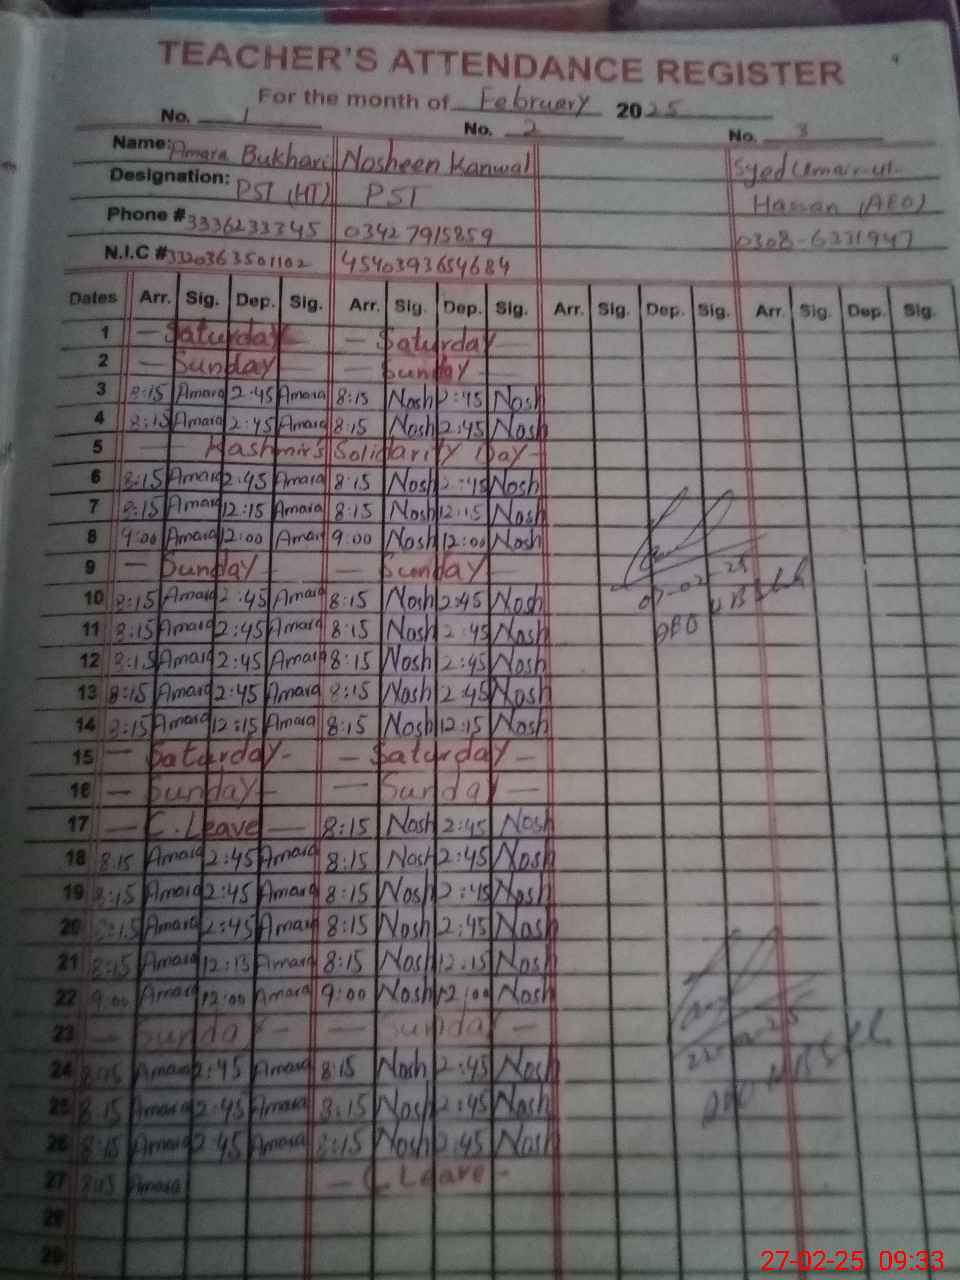 TEACHER'S ATTENDANCE REGISTER
For the month of February 2025
No. 1 No. 2 No. 3
Name: Amara Bukhari Nosheen Kanwal Syed Umair-ul-
Designation: PST (HT) PST Hassan (AEO)
Phone # 3336233345 03427915859 0308-6331947
N.I.C # 3320363501102 4540393654684
Dates Arr. Sig. Dep. Sig. Arr. Sig. Dep. Sig. Arr. Sig. Dep. Sig. Arr. Sig. Dep. Sig.
1 — Saturday — — Saturday —
2 — Sunday — — Sunday —
3 8:15 Amara 2:45 Amara 8:15 Nosh 2:45 Nosh
4 8:15 Amara 2:45 Amara 8:15 Nosh 2:45 Nosh
5 — Kashmir's Solidarity Day -
6 8:15 Amara 2:45 Amara 8:15 Nosh 2:45 Nosh
7 8:15 Amara 12:15 Amara 8:15 Nosh 12:15 Nosh
8 9:00 Amara 12:00 Amara 9:00 Nosh 12:00 Nosh
9 — Sunday — — Sunday —
10 8:15 Amara 2:45 Amara 8:15 Nosh 2:45 Nosh
11 8:15 Amara 2:45 Amara 8:15 Nosh 2:45 Nosh
12 8:15 Amara 2:45 Amara 8:15 Nosh 2:45 Nosh
13 8:15 Amara 2:45 Amara 8:15 Nosh 2:45 Nosh
14 8:15 Amara 12:15 Amara 8:15 Nosh 12:15 Nosh
15 — Saturday - — Saturday —
16 — Sunday - — Sunday —
17 — C. Leave — 8:15 Nosh 2:45 Nosh
18 8:15 Amara 2:45 Amara 8:15 Nosh 2:45 Nosh
19 8:15 Amara 2:45 Amara 8:15 Nosh 2:45 Nosh
20 8:15 Amara 2:45 Amara 8:15 Nosh 2:45 Nosh
21 8:15 Amara 12:15 Amara 8:15 Nosh 12:15 Nosh
22 9:00 Amara 12:00 Amara 9:00 Nosh 12:00 Nosh
23 — Sunday - — Sunday —
24 8:15 Amara 2:45 Amara 8:15 Nosh 2:45 Nosh
25 8:15 Amara 2:45 Amara 8:15 Nosh 2:45 Nosh
26 8:15 Amara 2:45 Amara 8:15 Nosh 2:45 Nosh
27 8:15 Amara — C. Leave -
28
29
27-02-25 09:33